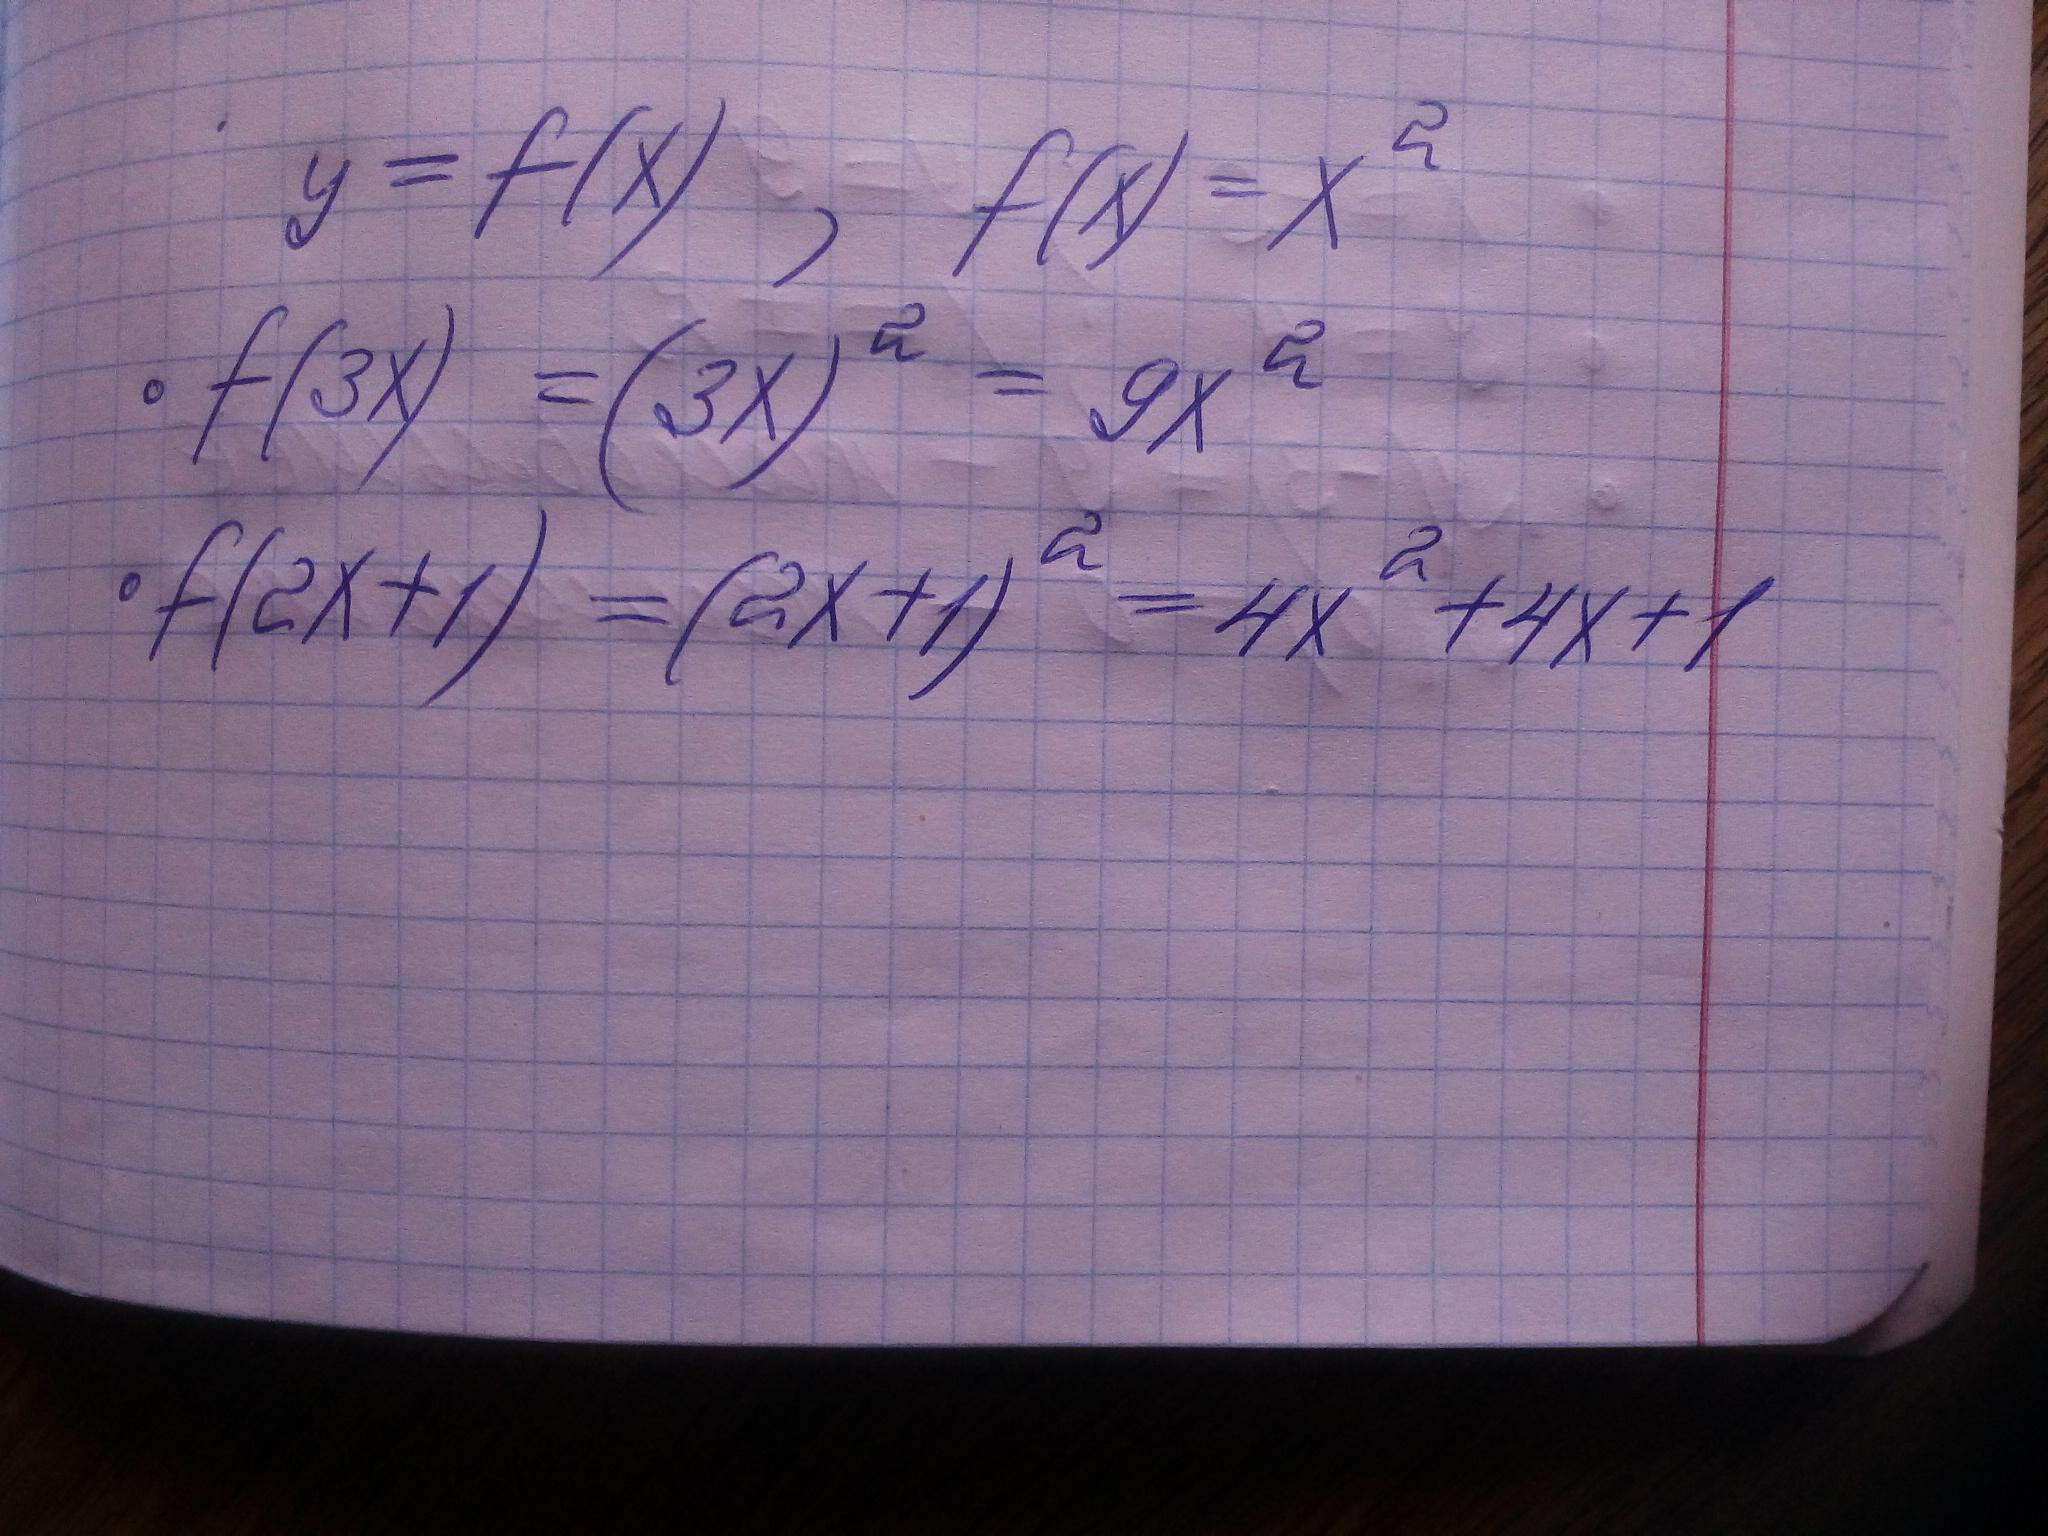 y = f(x), f(x) = x²
• f(3x) = (3x)² = 9x²
• f(2x+1) = (2x+1)² = 4x²+4x+1